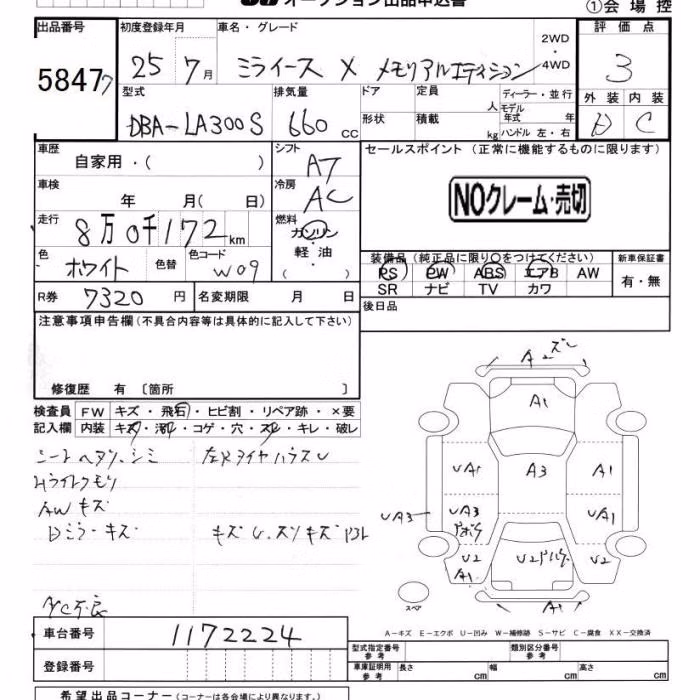 オークション出品申込書
①会場控
出品番号 初度登録年月 車名・グレード 評価点
58477 25 7月 ミライース X メモリアルエディション 2WD・4WD 3
型式 排気量 ドア 定員 人 ディーラー・並行 外装 内装
DBA-LA300S 660cc 形状 積載 kg モデル年式 年 D C
ハンドル 左・右
車歴 自家用・( ) シフト AT セールスポイント (正常に機能するものに限ります)
車検 年 月( 日) 冷房 AC NOクレーム・売切
走行 8万0千172km 燃料 ガソリン・軽油・( )
色 ホワイト 色替 色コード W09 装備品(純正品に限り○をつけてください) 新車保証書
PS PW ABS エアB AW 有・無
SR ナビ TV カワ
R券 7320円 名変期限 月 日 後日品
注意事項申告欄(不具合内容等は具体的に記入して下さい)
修復歴 有 〔箇所 〕
検査員記入欄 FW キズ・飛石・ヒビ割・リペア跡・×要
内装 キズ・汚れ・コゲ・穴・スレ・キレ・破レ
シートヘタリ、シミ
Hライトクモリ
AWキズ
Dミラーキズ
A/C不良
A2 スレ
A1
UA1 A3 A1
UA3 UA3 UA1
U2 U2 U2
A1
スペア
A-キズ E-エクボ U-凹み W-補修跡 S-サビ C-腐食 XX-交換済
車台番号 1172224
登録番号
型式指定番号 参考 類別区分番号 参考
車庫証明用 参考 長さ cm 幅 cm 高さ cm
希望出品コーナー(コーナーは各会場により異なります。)